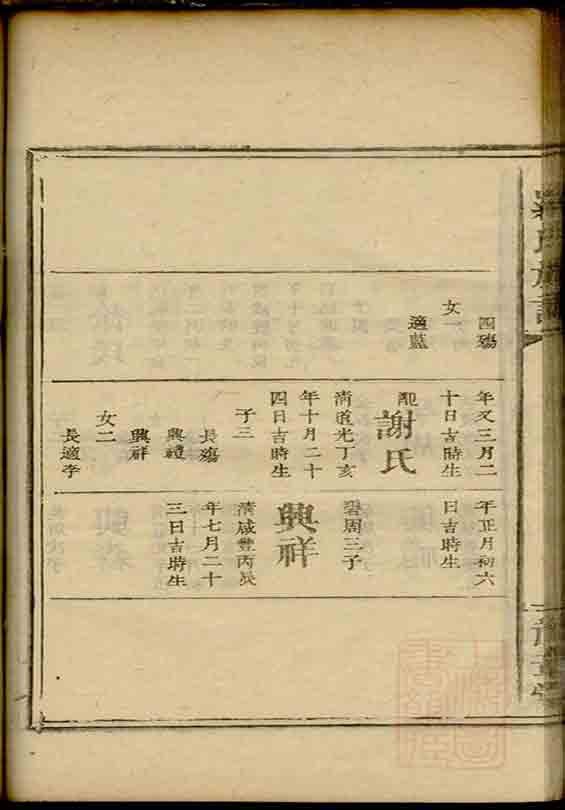 氏族譜
四殤
女一
適藍
年又三月二
十日吉時生
配
謝氏
清道光丁亥
年十月二十
四日吉時生
子三
長殤
興禮
興祥
女二
長適李
年正月初六
日吉時生
碧周三子
興祥
清咸豐丙辰
年七月二十
三日吉時生